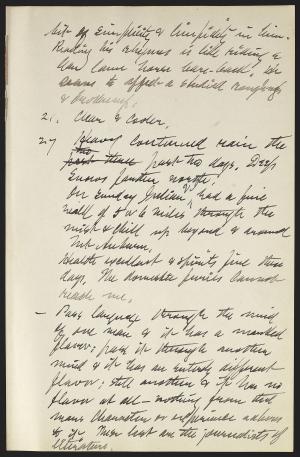 lack of simplicity & limpidity in him.
Reading his rhymes is like riding a
lame horse bare-back. He
seems to affect a studied roughness
&
21. Clear & Cooler.
27 Heavy continued rain the
past two days. Deep
snows farther north.
On Sunday Julian & I had a fine
walk of 5 or 6 miles through the
mist & chill up beyond & around
Mt
Health excellent & spirits fine these
days. The domestic furies cannot
reach me.
— Pass language through the mind
of one man & it has a marked
flavor; pass it through another
mind & it has an entirely different
flavor; still another & it has no
flavor at all — nothing from that
mans character or experience adheres
to it. These last are the journalists of
literature.